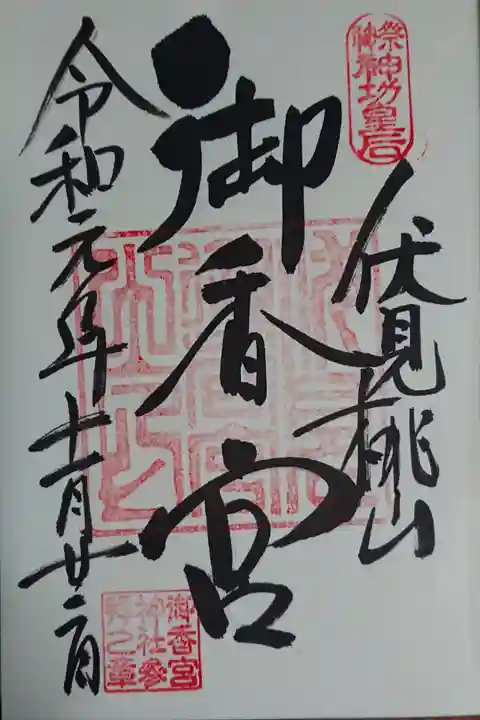 御祭神神功皇后
伏見桃山
御香宮
令和元年十一月廿二日
御香宮
神社参
拝之章